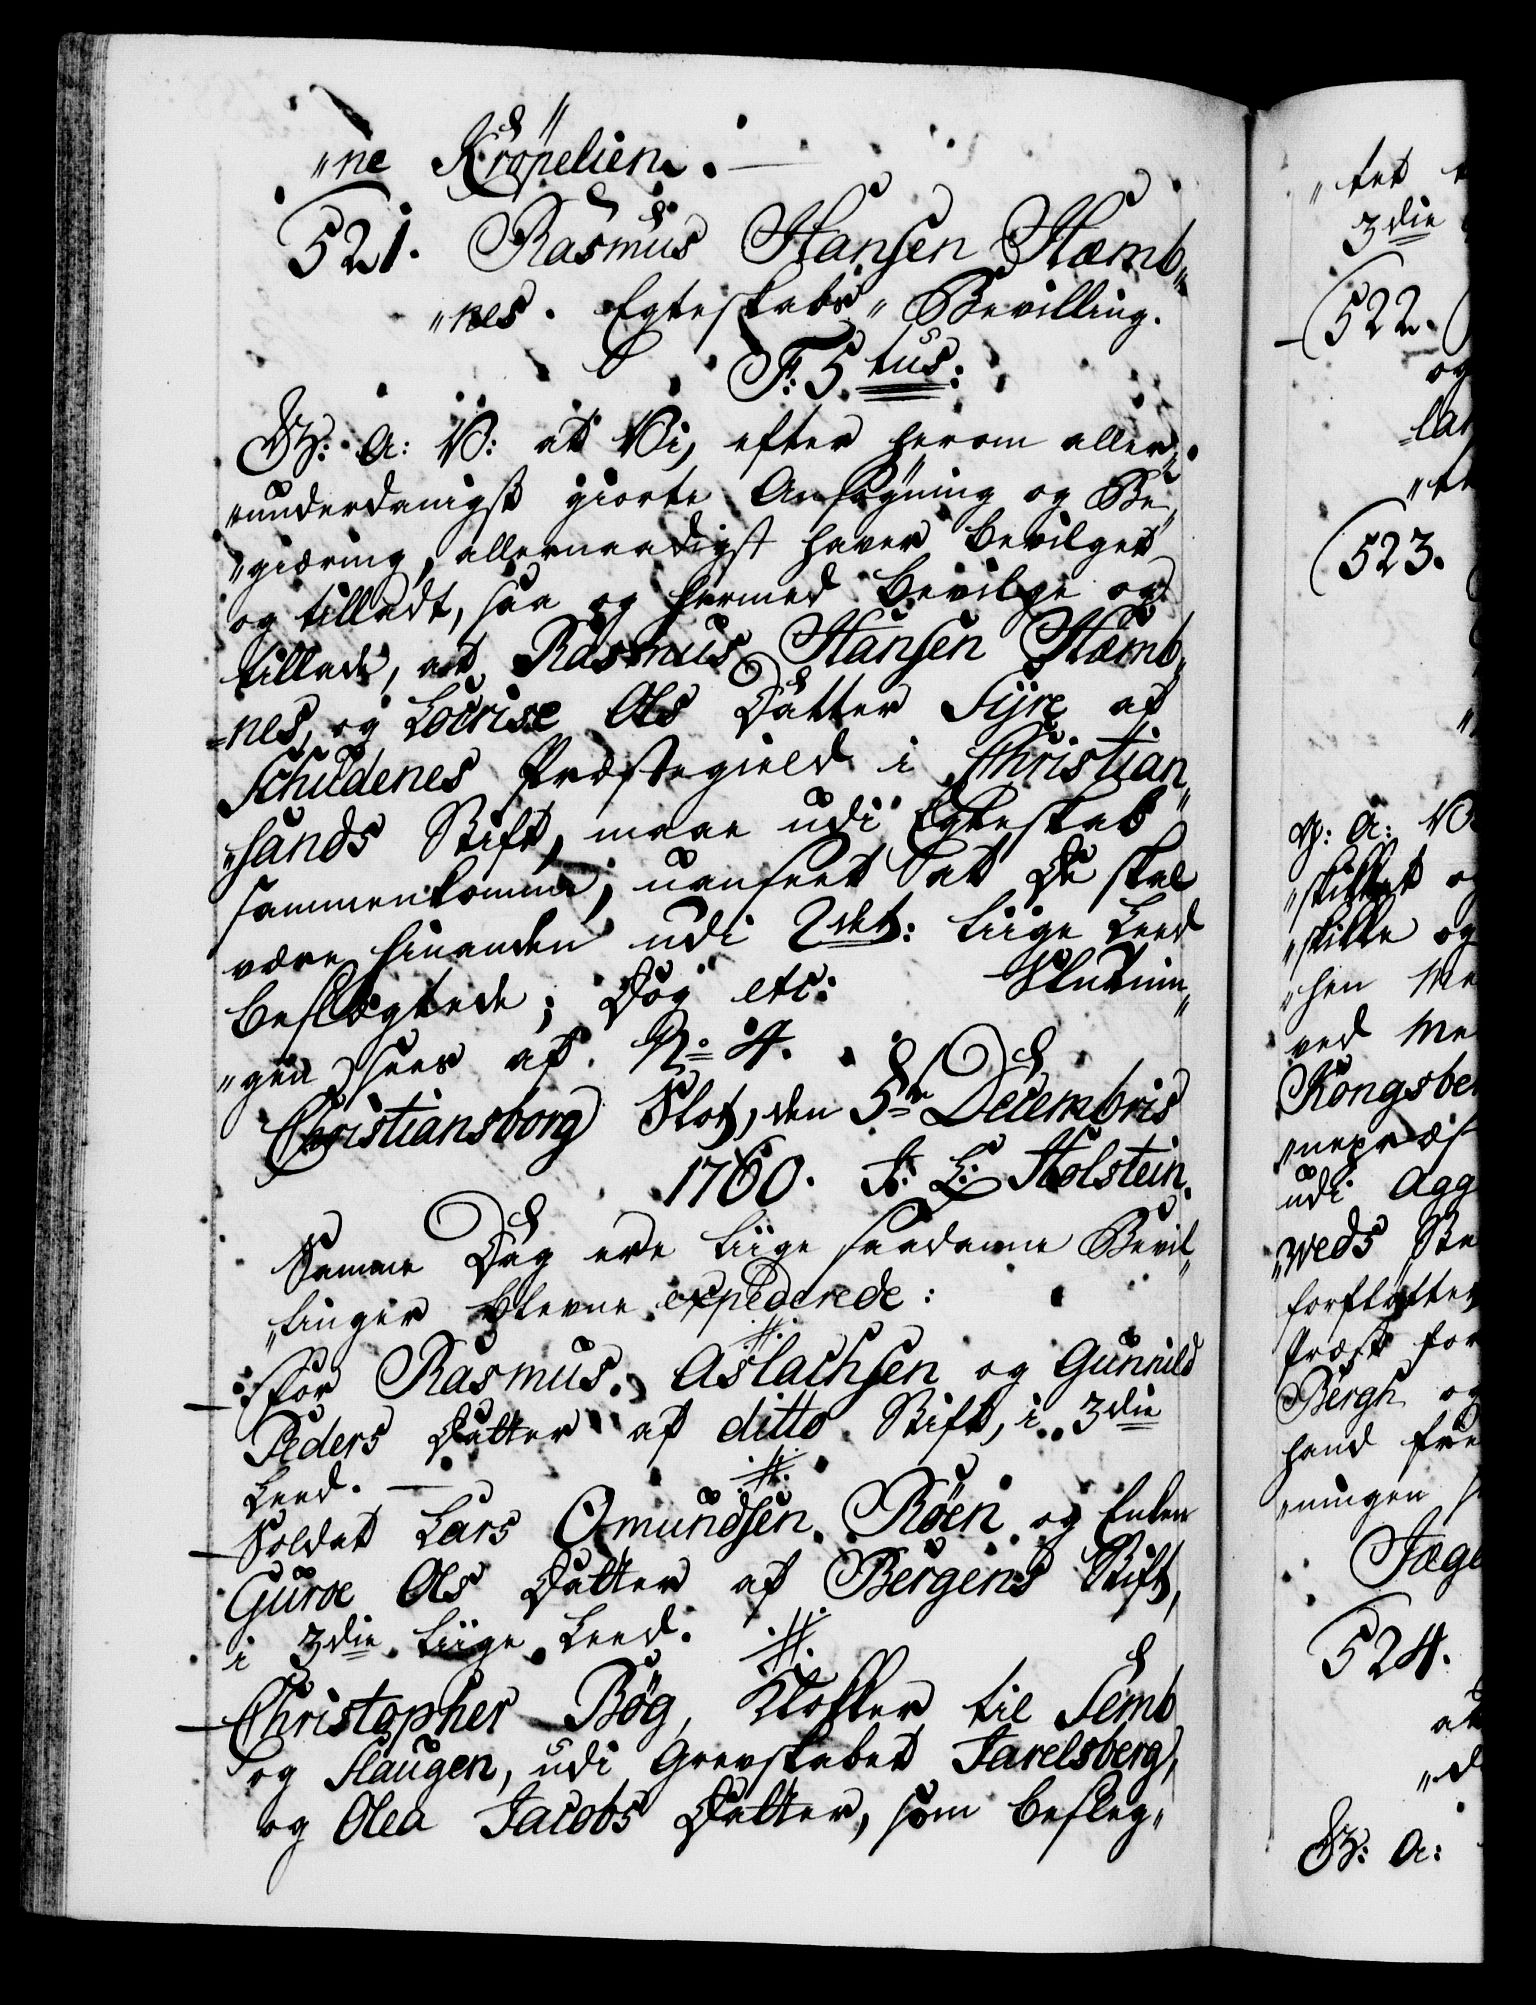 „ne Krøpelien. —
521. Rasmus Hansen Stæmb„
„nes. Egteskabs„ Bevilling.
F: 5tus:
G: A: V: at Vi, efter herom aller„
„underdanigst giorte Ansøgning og Be„
„giæring, allernaadigst haver bevilget
og tilladt, saa og hermed bevilge og
tillade, at Rasmus Hansen Stæmb„
„nes, og Lourise Ols Datter Syre af
Schudenes Præstegield i Christian„
„sands Stift, maae udi Egteskab
sammenkomme, uanseet at De skal
være hinanden udi 2det: liige Leed
beslægtede; Dog etc: Slutnin„
„gen sees af. No 4.
Christiansborg Slot, den 5te Decembris
1760. J: L: Holstein.
Samme Dag ere liige saadanne Bevil„
„linger blevne expederede:
— for Rasmus Aslachsen og Gunnild
Peders Datter af ditto Stift, i 3die
Leed. —
— Soldat Lars Omundsen Røen og Enken
Guroe Ols Datter af Bergens Stift,
i 3die liige Leed.
— Christopher Bøg, Klokker til Semb
og Slaugen, udi Grevskabet Jarelsberg,
og Olea Jacobs Datter, som besleg„
„tet
3die
522.
og
523.
G: A: V
„skikket og
„skikke og
„hen Me
ved Me
Kongsbe
udi Agg
„weds Ste
forflytter
Præst for
Bergh og
hand fre
„ningen
Jæge
524.
G: A: